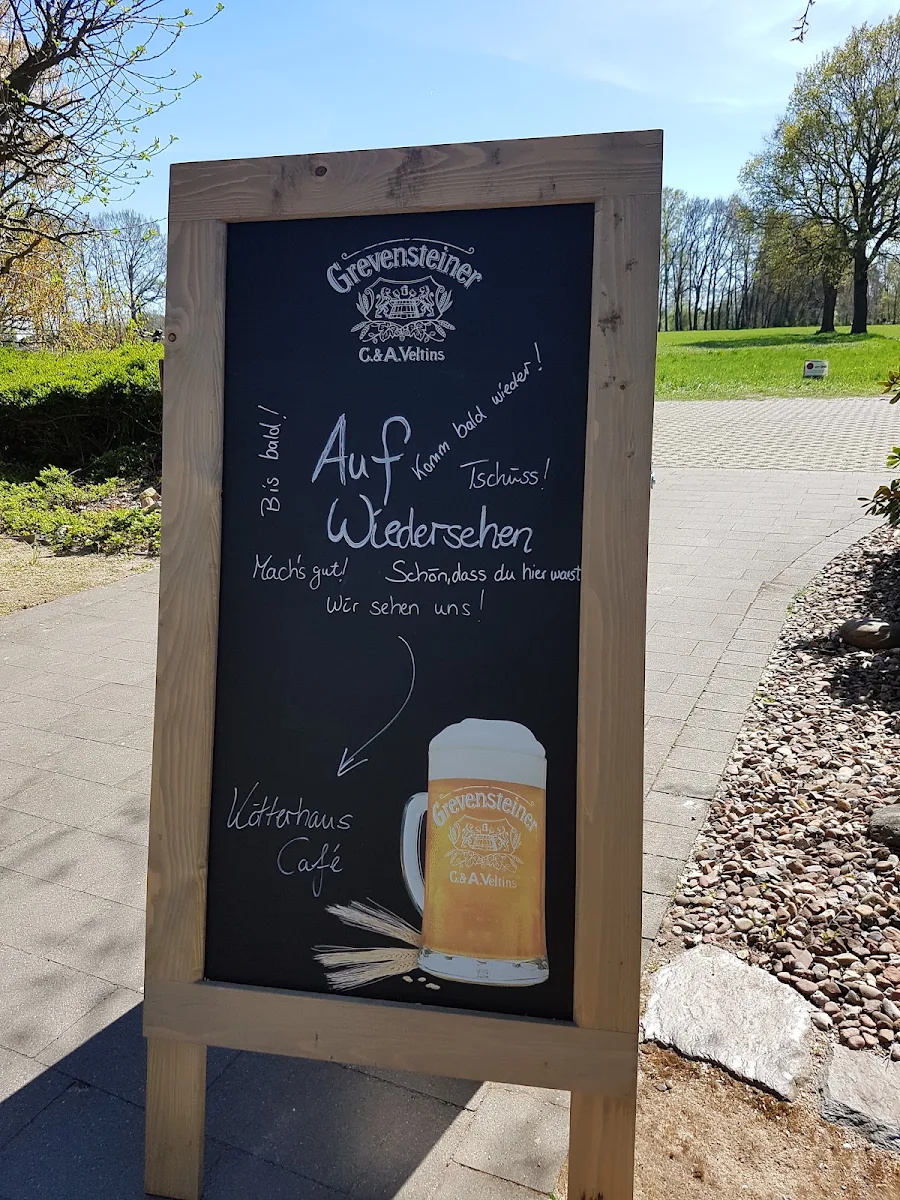 Grevensteiner
C. & A. Veltins
Bis bald!
Auf
Komm bald wieder!
Tschüss!
Wiedersehen
Mach's gut!
Schön, dass du hier warst
Wir sehen uns!
Kötterhaus
Café
Grevensteiner
C. & A. Veltins